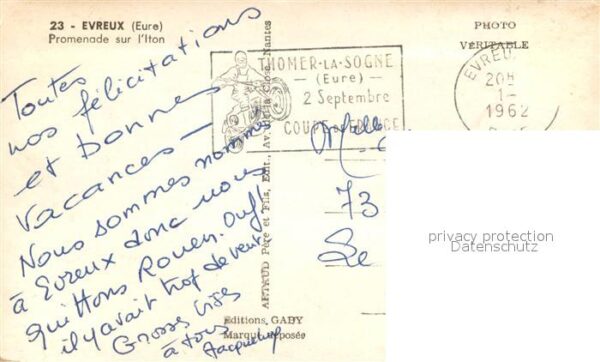 23 - EVREUX (Eure)
Promenade sur l'Iton
PHOTO
VÉRITABLE
THOMER-LA-SOGNE
— (Eure) —
2 Septembre
COUPE DE FRANCE
EVREUX
20H
1-
1962
Toutes
nos félicitations
et bonnes
vacances —
Nous sommes nommés
à Evreux donc nous
quittons Rouen. Ouf!
il y avait trop de vent
Grosses bises
à tous
Jacqueline
ARTAUD Père et Fils, Edit., Av. de la Close, Nantes
Editions GABY
Marque déposée
Mlle
73
Le
privacy protection
Datenschutz